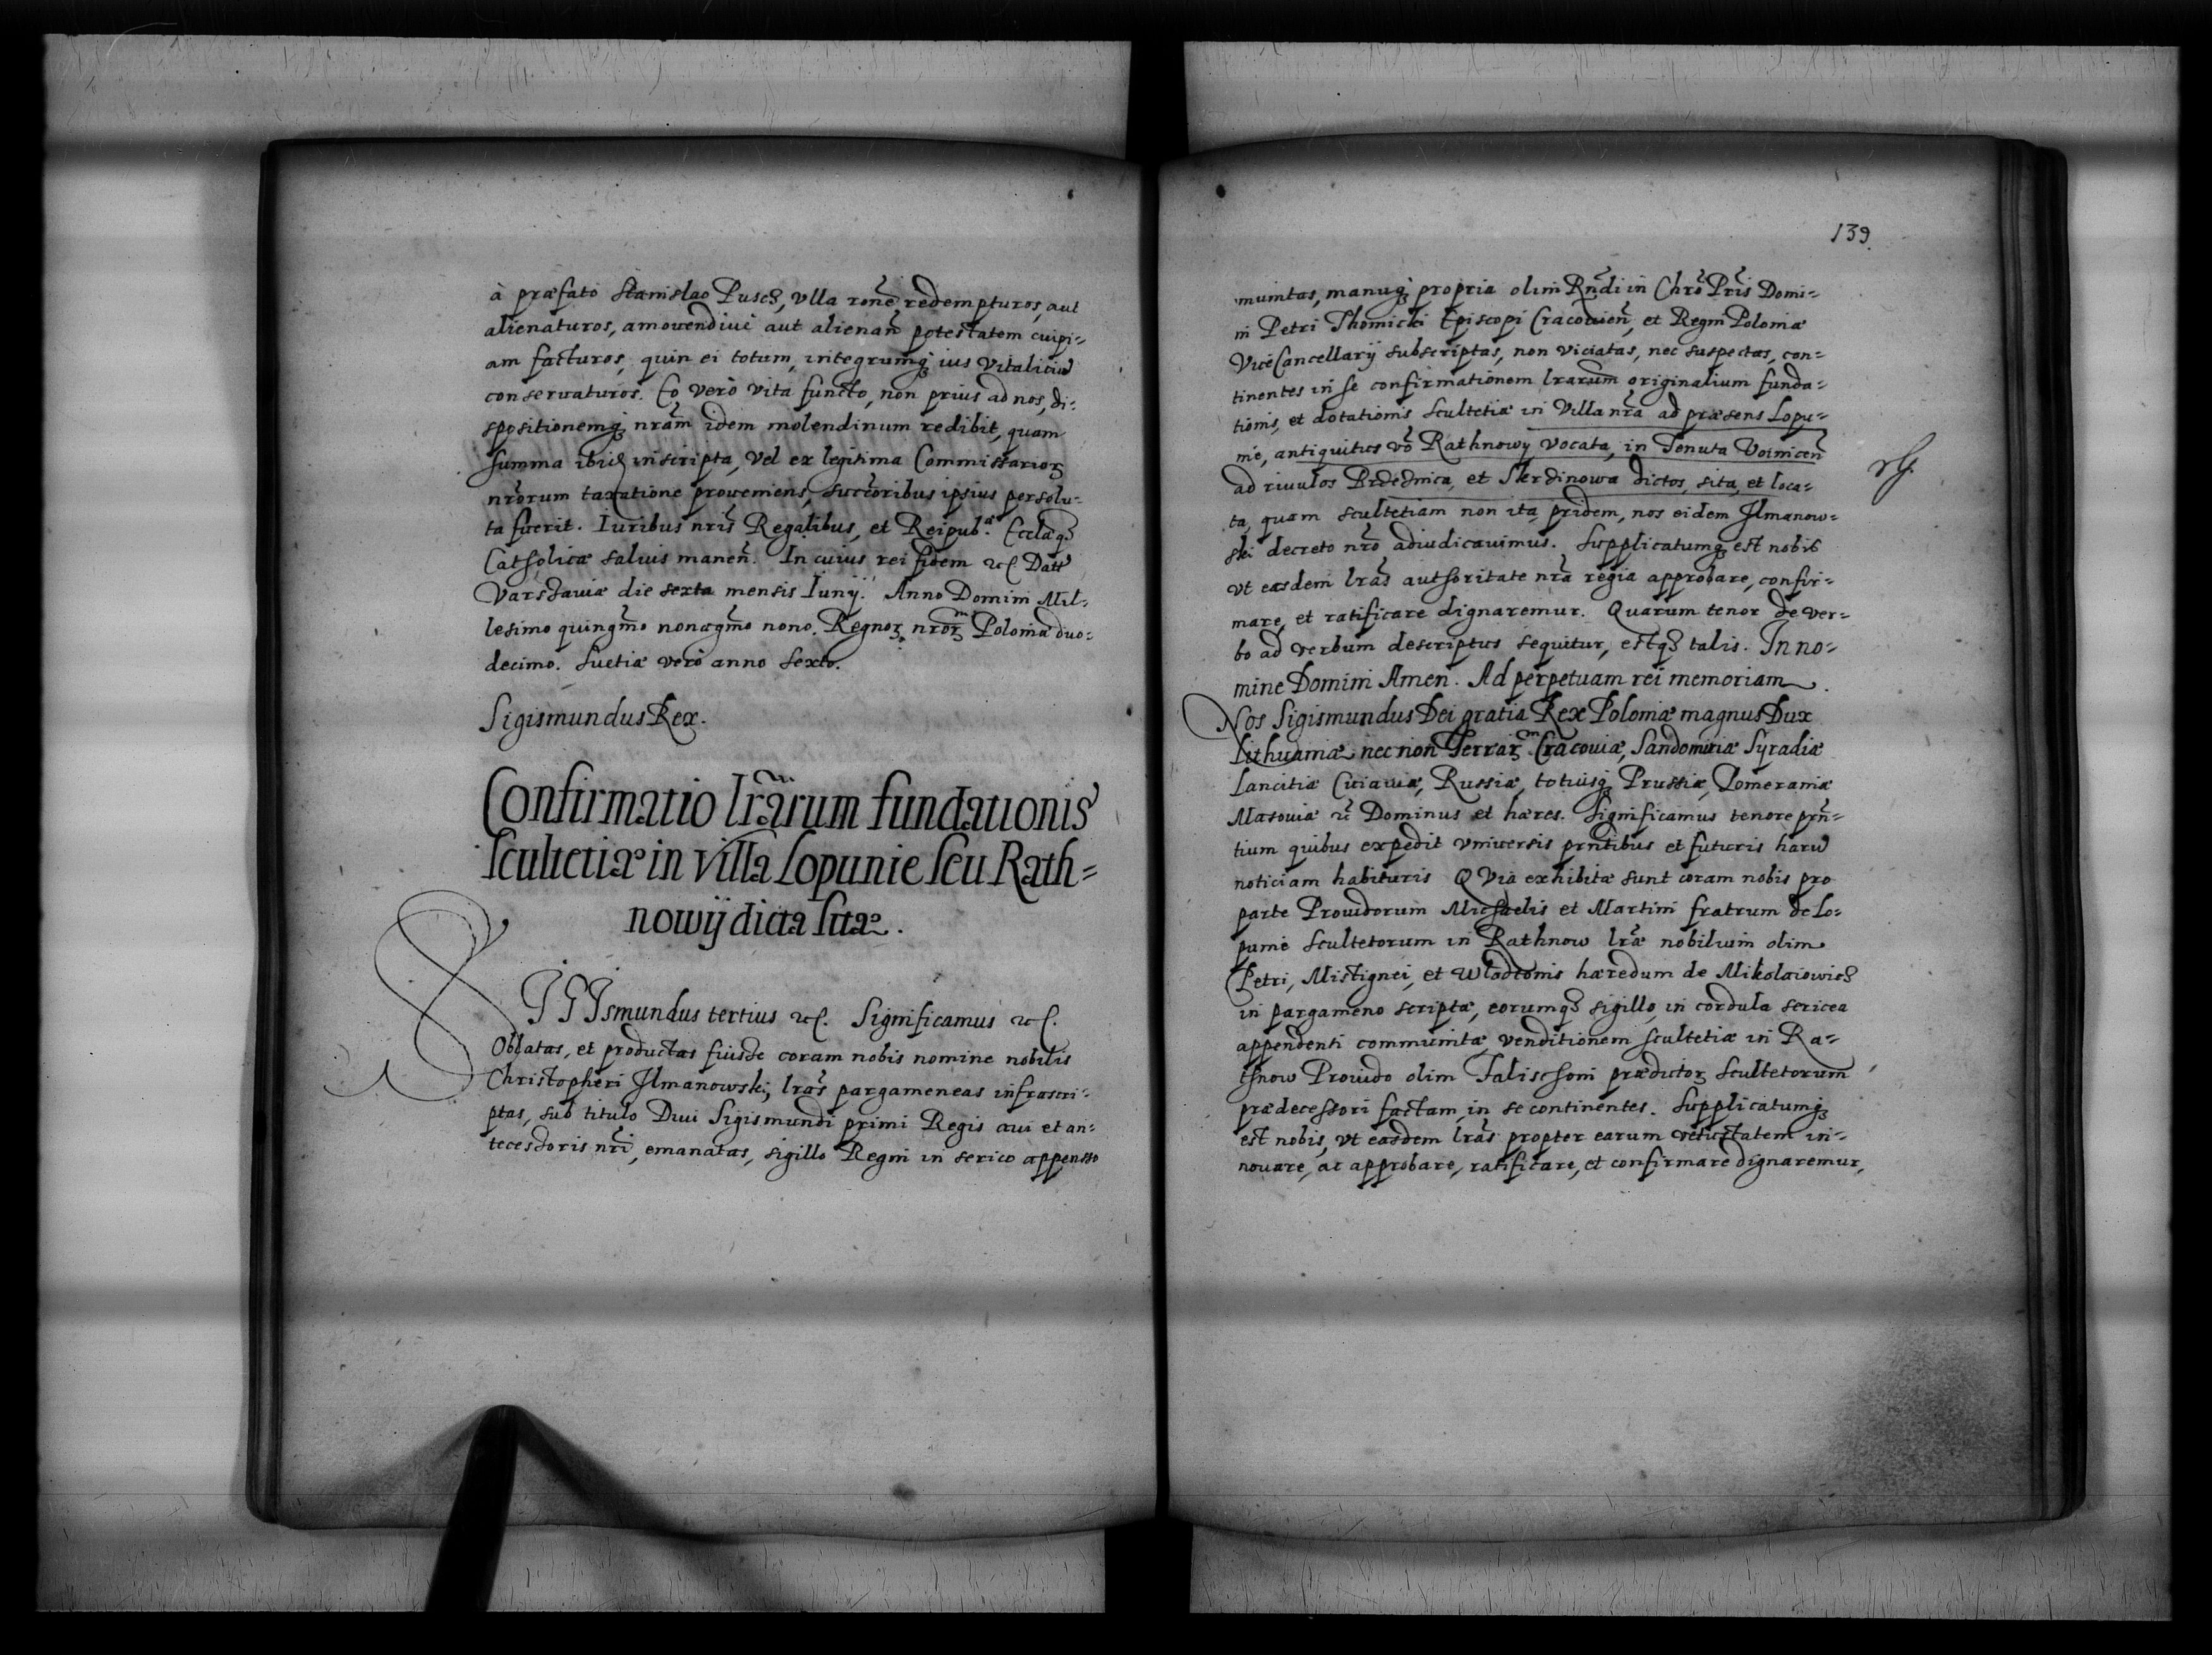 à præfato Stanislao Pusch, vlla rone redempturos, aut
alienaturos, amouendiue aut alienan potestatem cuipi-
am facturos, quin ei totum, integrumq ius vitalitiu
conseruaturos. Eo verò vita functo, non prius ad nos, di-
spositionemq nram idem molendinum redibit, quam
summa ibid inscripta, vel ex legitima Commissarior
nrorum taxatione proueniens, succoribus ipsius persolu-
ta fuerit. Iuribus nris Regalibus, et Reipub. Ecclæq
Catholicæ saluis manen. In cuius rei fidem etc Datt
Varschauiæ die sexta mensis Iunij. Anno Domini Mil-
lesimo quingmo nonagmo nono. Regnor nror Poloniæ duo-
decimo. Suetiæ verò anno sexto.
Sigismundus Rex.
Confirmatio lrarum fundationis
scultetiæ in villa Lopunie seu Rath-
nowij dicta sitæ.
SIGIsmundus tertius etc. Significamus etc.
Oblatas, et productas fuisse coram nobis nomine nobilis
Christopheri Ilmanowski, lras pargameneas infrascri-
ptas, sub titulo Diui Sigismundi primi Regis aui et an-
tecessoris nri, emanatas, sigillo Regni in serico appenso
139.
munitas, manuq propria olim Rndi in Chro Pris Domi-
ni Petri Thomicki Episcopi Cracouien, et Regni Poloniæ
ViceCancellarij subscriptas, non viciatas, nec suspectas, con-
tinentes in se confirmationem lrarum originalium funda-
tionis, et dotationis scultetiæ in Villa nra ad præsens Lopu-
nie, antiquitus vo Rathnowy vocata, in Tenuta Voinicen
ad riuulos Brdednica, et Skrdinowa dictos, sita, et loca-
ta, quam scultetiam non ita pridem, nos eidem Ilmanow-
ski decreto nro adiudicauimus. Supplicatumq est nobis
vt easdem lras authoritate nra regia approbare, confir-
mare, et ratificare dignaremur. Quarum tenor de ver-
bo ad verbum descriptus sequitur, estq talis. In no-
mine Domini Amen. Ad perpetuam rei memoriam.
Nos Sigismundus Dei gratia Rex Poloniæ magnus Dux
Lithuaniæ nec non Terrar Cracouiæ, Sandomiriæ Syradiæ
Lancitiæ Cuiauiæ, Russiæ, totiusq Prussiæ, Pomeraniæ
Masouiæ etc Dominus et hæres. Significamus tenore prn-
tium quibus expedit vniuersis prntibus et futuris haru
noticiam habituris QVia exhibitæ sunt coram nobis pro
parte Prouidorum Michaelis et Martini fratrum de Lo-
punie scultetorum in Rathnow lræ nobilium olim
Petri, Mistignei, et Wlodconis hæredum de Mikolaiowich
in pargameno scriptæ, eorumq sigillo in cordula sericea
appendenti communitæ, venditionem scultetiæ in Ra-
thnow Prouido olim Falischoni prædictor scultetorum
prædecessori factam, in se continentes. Supplicatumq
est nobis, vt easdem lras propter earum vetustatem in-
nouare, ac approbare, ratificare, et confirmare dignaremur,